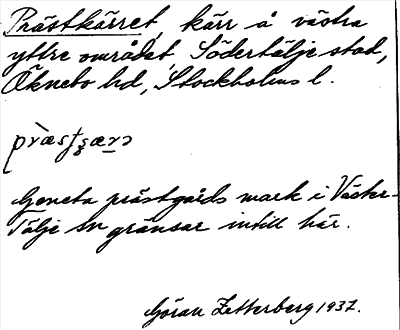 Prästkärret, kärr å västra
yttre området, Södertälje stad,
Öknebo hd, Stockholms l.
Geneta prästgårds mark i Väster-
Tälje sn gränsar intill här.
Göran Zetterberg 1937.